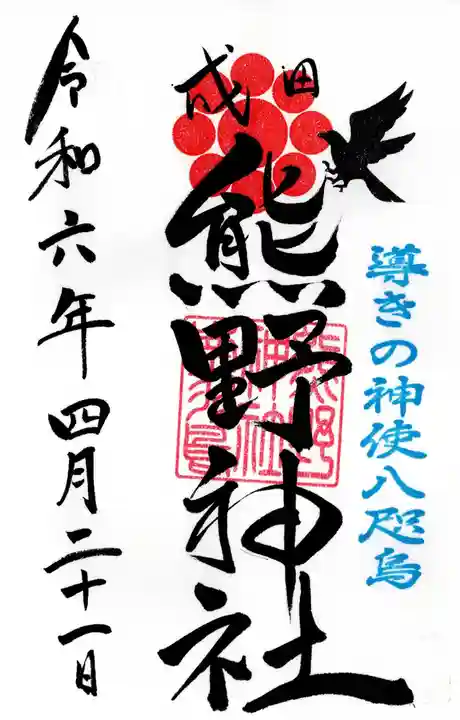 導きの神使八咫烏
成田
熊野神社
令和六年四月二十一日